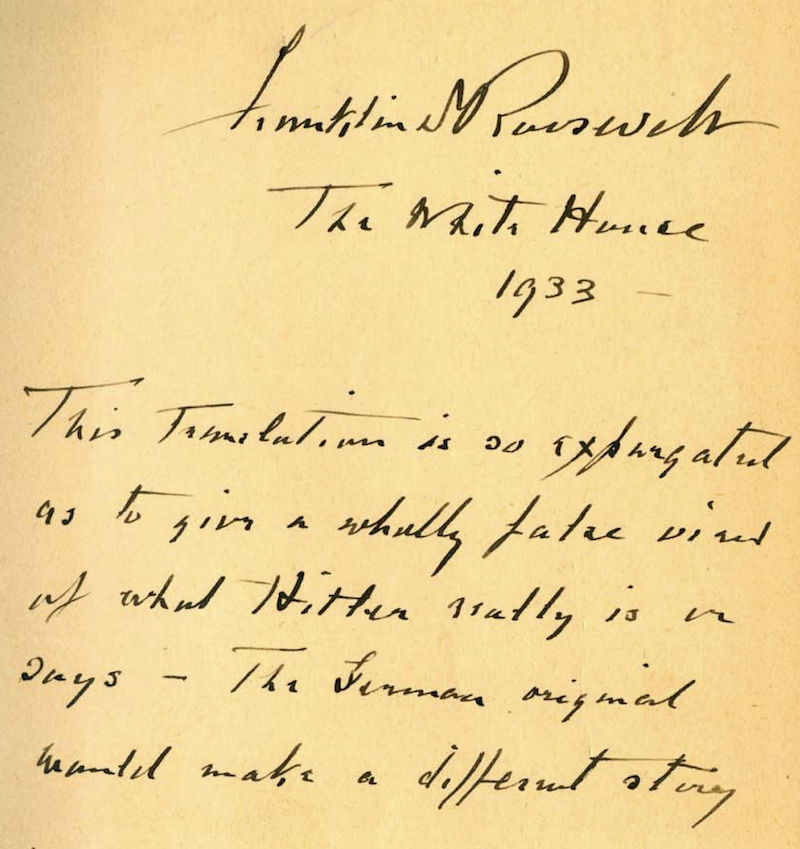 Franklin D Roosevelt
The White House
1933 –
This translation is so expurgated
as to give a wholly false view
of what Hitler really is or
says – The German original
would make a different story